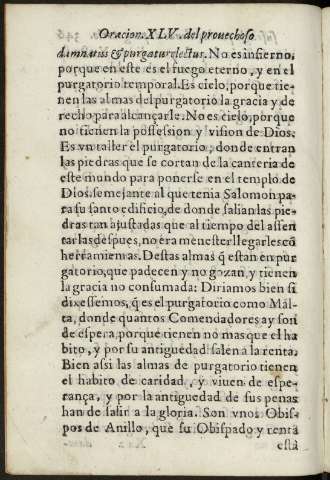 Oracion. XLV. del prouechoso
damnatus & purgatur electus. No es infierno,
porque en este es el fuego eterno, y en el
purgatorio temporal. Es cielo, porque tie-
nen las almas del purgatorio la gracia y de
recho para alcançarle. No es cielo, porque
no tienen la possession y vision de Dios.
Es vn taller el purgatorio, donde entran
las piedras que se cortan de la canteria de
este mundo para ponerse en el templo de
Dios. semejante al que tenia Salomon pa-
ra su santo edificio, de donde salian las pie-
dras tan ajustadas que al tiempo del assen
tar las despues, no era menester llegarles cõ
herramiẽtas. Destas almas q̃ estan en pur
gatorio, que padecen y no gozan, y tienen
la gracia no consumada: Diriamos bien si
dixessemos, q̃ es el purgatorio como Mal-
ta, donde quantos Comendadores ay son
de espera, porque tienen no mas que el ha
bito, y por su antiguedad salen a la renta.
Bien assi las almas de purgatorio tienen
el habito de caridad, y viuen de espe-
rança, y por la antiguedad de sus penas
han de salir a la gloria. Son vnos Obis-
pos de Anillo, que su Obispado y renta
está